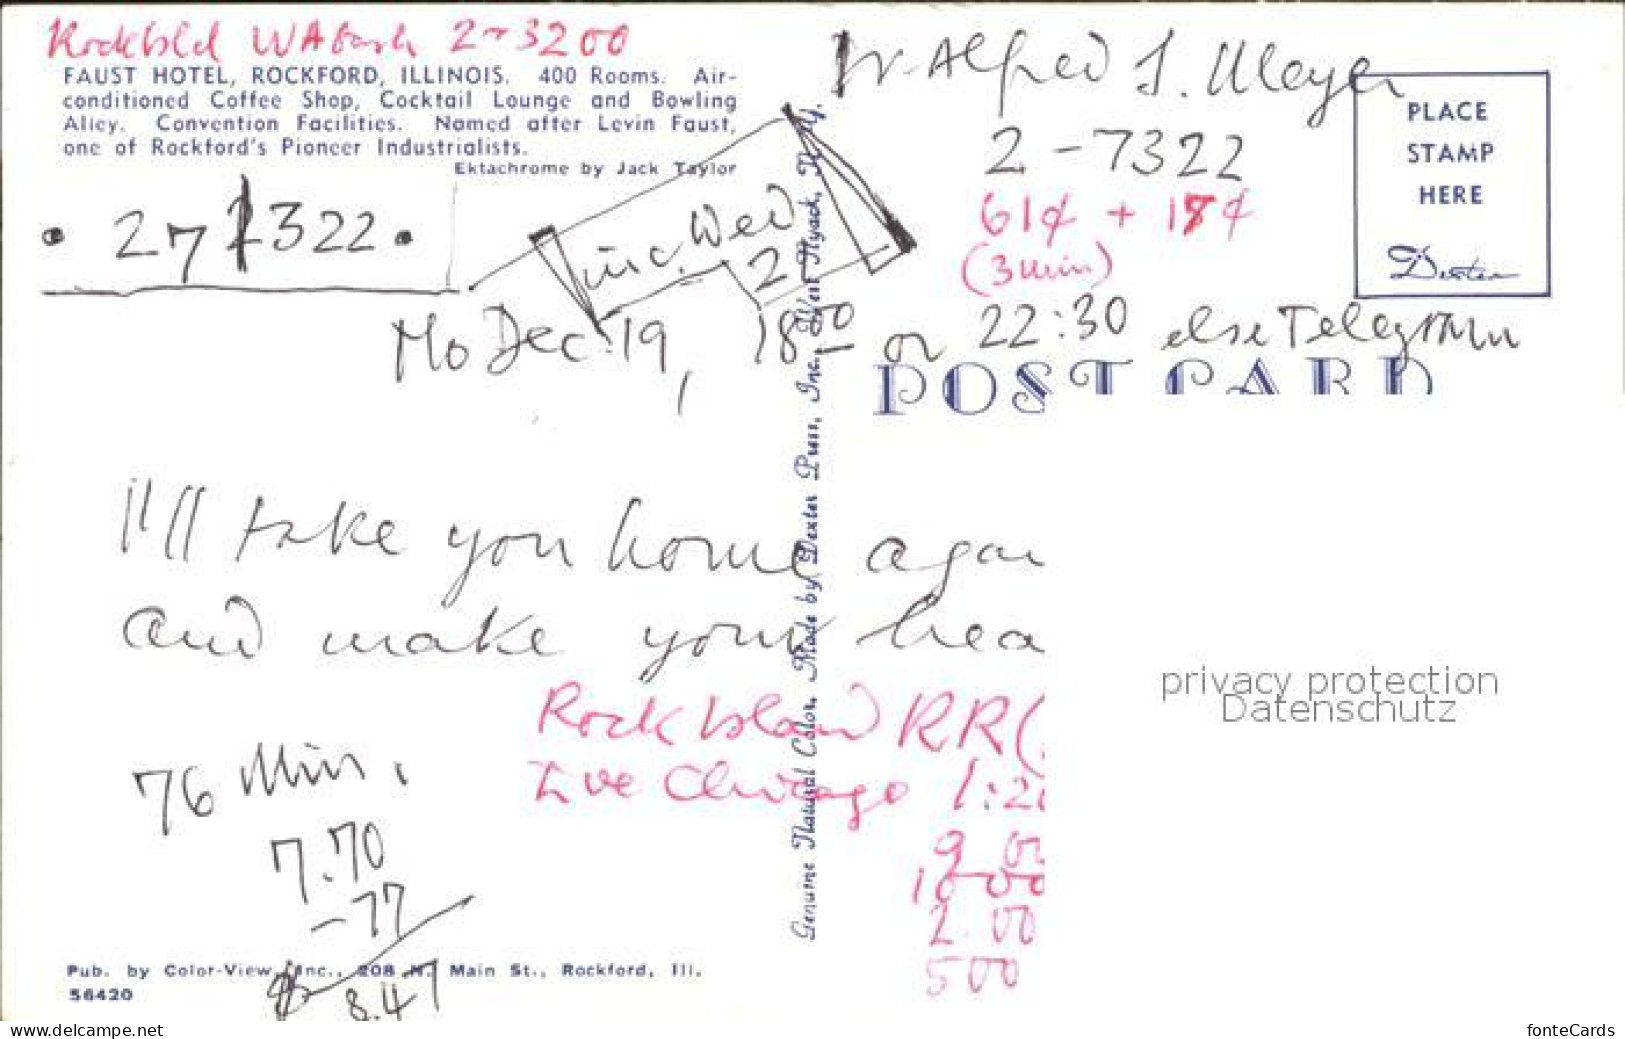 Rockisld WAbash 2-3200
FAUST HOTEL, ROCKFORD, ILLINOIS. 400 Rooms. Air-
conditioned Coffee Shop, Cocktail Lounge and Bowling
Alley. Convention Facilities. Named after Levin Faust,
one of Rockford's Pioneer Industrialists.
Ektachrome by Jack Taylor
Alfred J. Meyer
2-7322
61¢ + 18¢
(3 min)
PLACE
STAMP
HERE
Dexter
• 27 322 •
inc. Wed
2
Mo Dec. 19, 18 00 or 22:30 else Telegram
POST CARD
I'll take you home agai
and make your hea
Rock Island RR(
Lve Chicago 1:2
9 00
10 00
2.00
500
76 Min.
7.70
-77
8.47
Genuine Natural Color. Made by Dexter Press, Inc., West Nyack, N. Y.
Pub. by Color-View, Inc., 208 N. Main St., Rockford, Ill.
56420
privacy protection
Datenschutz
www.delcampe.net
fonteCards